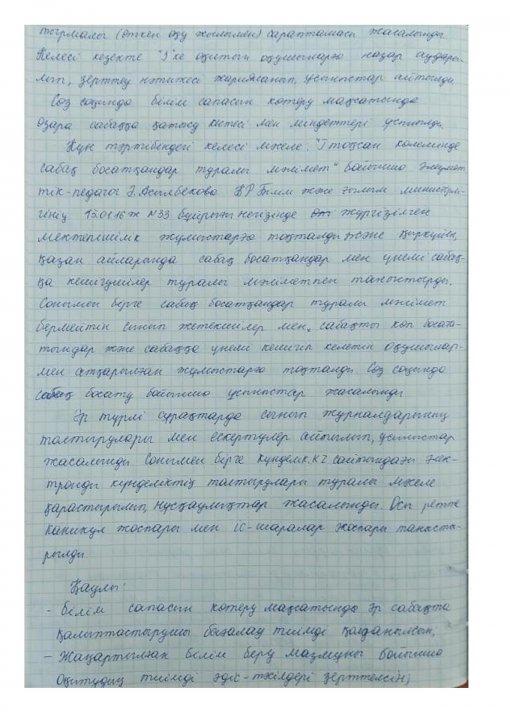 тырмалы (өткен оқу жылымен) сараптамасы жасалынды.
Келесі кезекте "3"ке оқитын оқушыларға назар аудары-
лып, зерттеу нәтижесі жарияланып, ұсыныстар айтылды.
Сөз соңында білім сапасын көтеру мақсатында
өзара сабаққа қатысу кестесі мен міндеттері ұсынылды.
Күн тәртібіндегі келесі мәселе: "I тоқсан көлемінде
сабақ босатқандар туралы мәлімет" бойынша әлеумет
тік-педагог Ә.Асылбекова ҚР Білім және ғылым министрлі-
гінің 13.01.16ж №33 бұйрығы негізінде жүргізілген
мектепішілік жұмыстарға тоқталды және қыркүйек,
қазан айларында сабақ босатқандар мен үнемі сабақ-
қа кешігушілер туралы мәліметпен таныстырды.
Сонымен бірге сабақ босатқандар туралы мәлімет
бермейтін сынып жетекшілер мен, сабақты көп боса-
тындар және сабаққа үнемі кешігіп келетін оқушылар-
мен атқарылған жұмыстарға тоқталды. Сөз соңында
сабақ босату бойынша ұсыныстар жасалынды
Әр түрлі сұрақтарда сынып журналдарының
толтырулары мен ескертулер айтылып, ұсыныстар
жасалынды. Сонымен бірге Күнделік.KZ сайтындағы элек-
тронды күнделіктің толтырулары туралы мәселе
қарастырылып, нұсқаулықтар жасалынды. Осы ретте
Каникул жоспары мен іс-шаралар жоспары танысты-
рылды.
Қаулы:
- Білім сапасын көтеру мақсатында әр сабақта
қалыптастырушы бағалау тиімді қолданылсын,
- Жаңартылған білім беру мазмұны бойынша
оқытудың тиімді әдіс-тәсілдері зерттелсін;